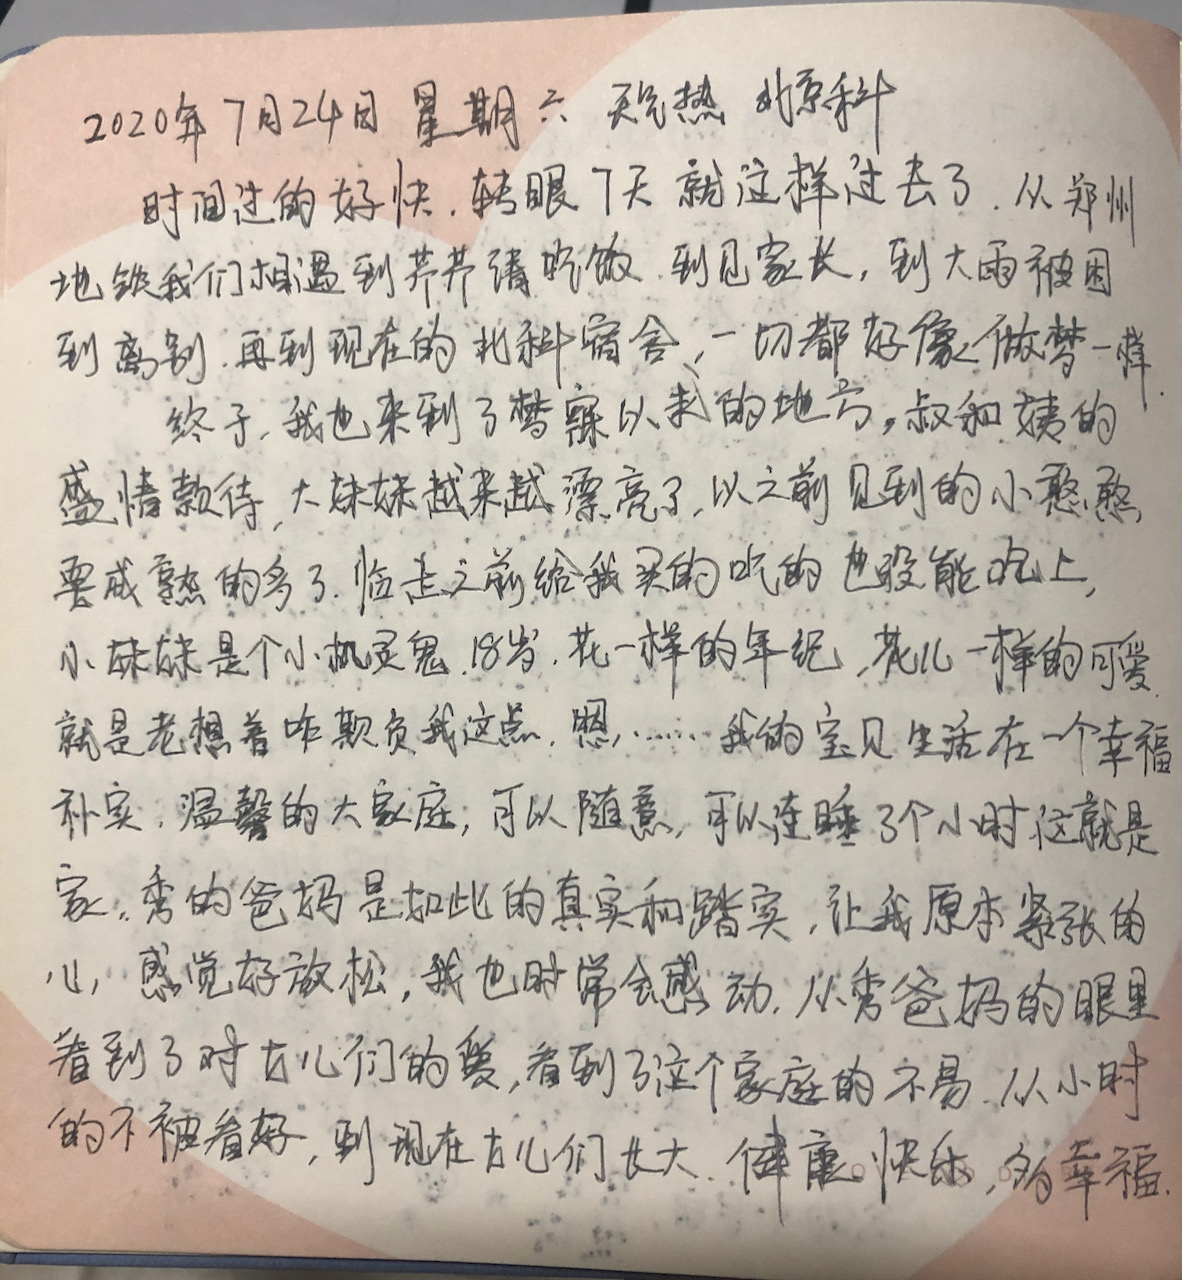 2020年7月24日 星期六 天气热 北京科
时间过的好快.转眼7天就这样过去了.从郑州
地铁我们相遇到芹芹请吃饭.到见家长,到大雨被困
到离别.再到现在的北科宿舍、一切都好像做梦一样.
终于,我也来到了梦寐以求的地方,叔和姨的
盛情款待,大妹妹越来越漂亮了,以之前见到的小憨憨
要成熟的多了.临走之前给我买的吃的也没能吃上,
小妹妹是个小机灵鬼.18岁.花一样的年纪,花儿一样的可爱.
就是老想着咋欺负我这点.嗯……我的宝贝生活在一个幸福
朴实.温馨的大家庭,可以随意,可以连睡3个小时,这就是
家.秀的爸妈是如此的真实和踏实,让我原本紧张的
心,感觉好放松,我也时常会感动.从秀爸妈的眼里
看到了对女儿们的爱,看到了这个家庭的不易.从小时
的不被看好,到现在女儿们长大.健康.快乐,多幸福.